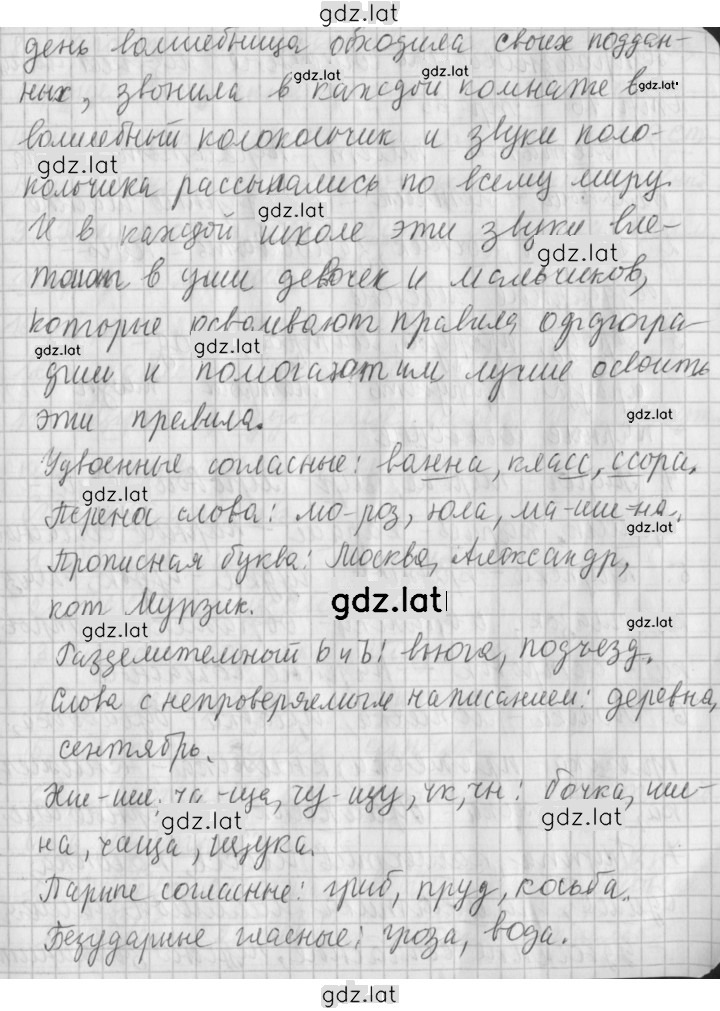 gdz.lat
день волшебница обходила своих поддан-
ных, звонила в каждой комнате в
gdz.lat gdz.lat gdz.lat
волшебный колокольчик и звуки коло-
gdz.lat
кольчика рассыпались по всему миру.
gdz.lat
И в каждой школе эти звуки вле-
gdz.lat
тают в уши девочек и мальчиков,
которые осваивают правила орфогра-
gdz.lat gdz.lat
фии и помогают им лучше освоить
эти правила.
gdz.lat
Удвоенные согласные: ванна, класс, ссора.
gdz.lat
Перенос слова: мо-роз, юла, ма-ши-на.
gdz.lat
Прописная буква: Москва, Александр,
кот Мурзик.
gdz.lat
gdz.lat gdz.lat
Разделительный ь и ъ: вьюга, подъезд.
Слова с непроверяемым написанием: деревня,
сентябрь.
Жи-ши, ча-ща, чу-щу, чк, чн: бочка, ши-
gdz.lat gdz.lat
на, чаща, щука.
Парные согласные: гриб, пруд, косьба.
Безударные гласные: гроза, вода.
gdz.lat